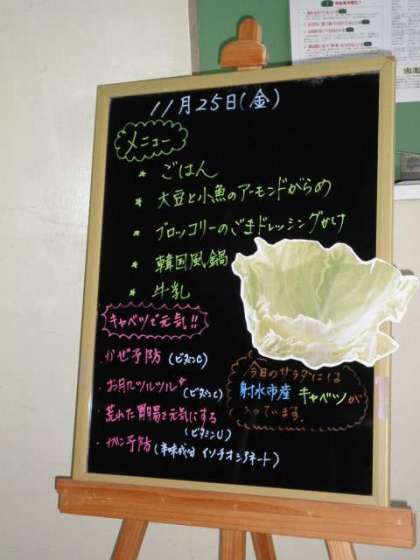 11月25日(金)
メニュー
* ごはん
* 大豆と小魚のアーモンドがらめ
* ブロッコリーのごまドレッシングかけ
* 韓国風鍋
* 牛乳
キャベツで元気!!
・かぜ予防(ビタミンC)
・お肌ツルツル(ビタミンC)
・荒れた胃腸を元気にする
(ビタミンU)
・がん予防(辛味成分 イソチオシアネート)
今日のサラダには
射水市産 キャベツが
入っています。